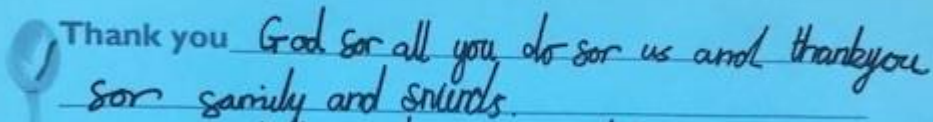 Thank you God for all you do for us and thankyou
for family and friends.